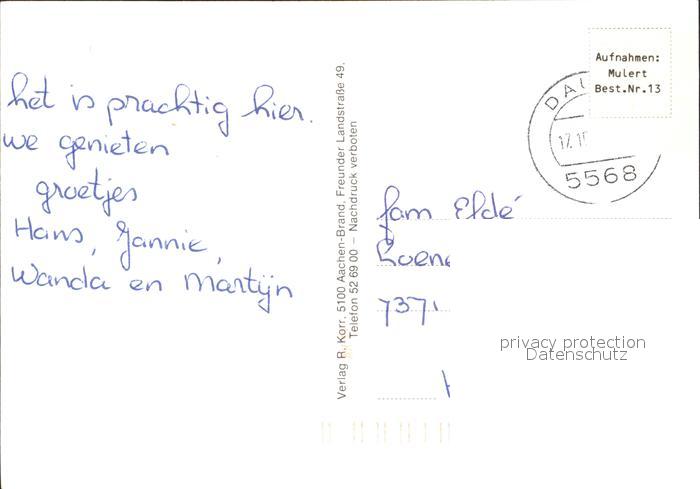 het is prachtig hier.
we genieten
groetjes
Hans, Jannie,
Wanda en Martijn
Verlag R. Korr, 5100 Aachen-Brand, Freunder Landstraße 49,
Telefon 52 69 00 – Nachdruck verboten
Aufnahmen:
Mulert
Best.Nr.13
DAU
5568
fam Efdé
7371
privacy protection
Datenschutz